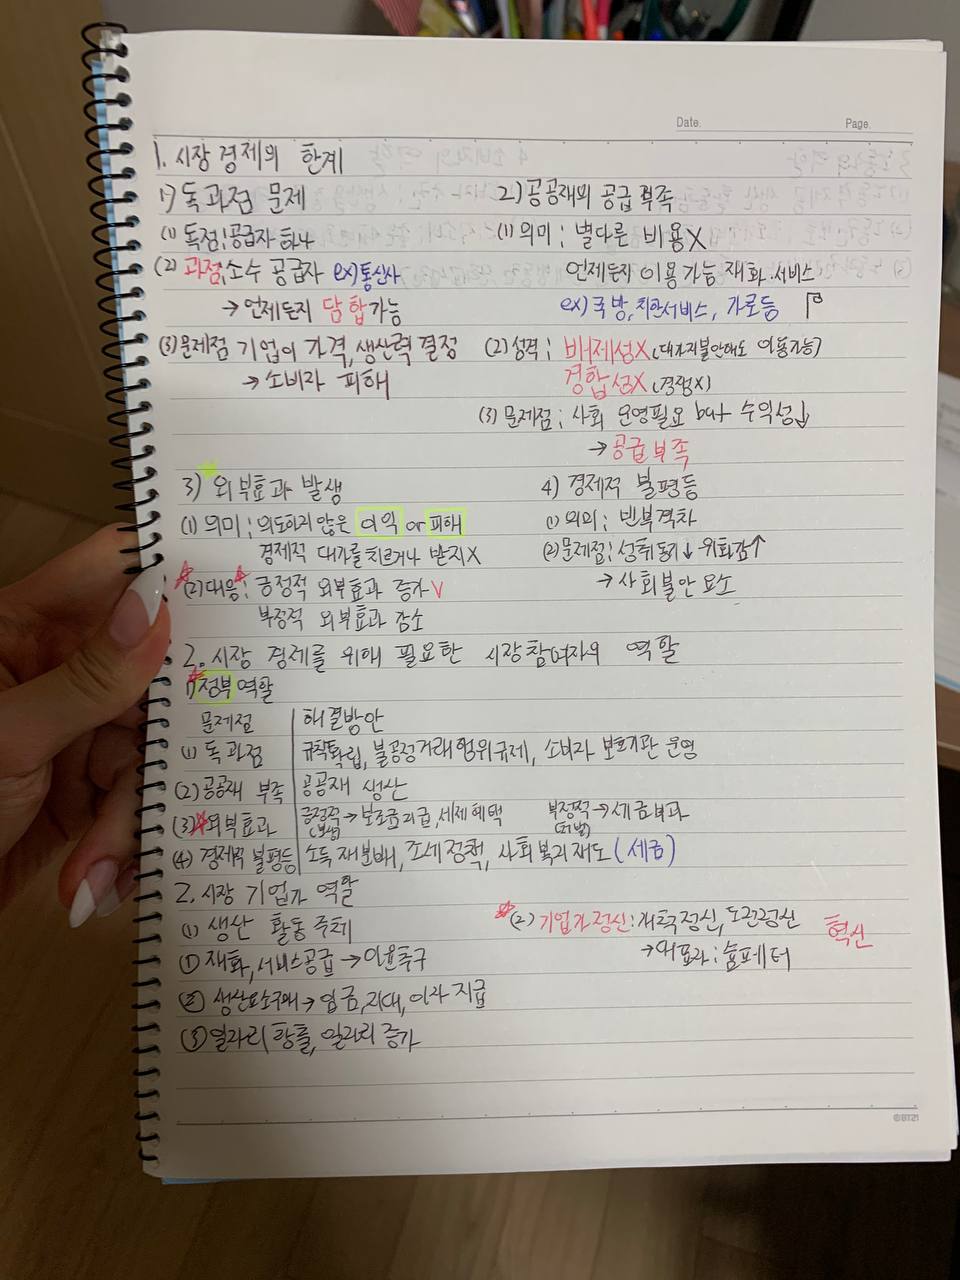 Date.
Page.
1. 시장 경제의 한계
1) 독과점 문제
(1) 독점 ; 공급자 하나
(2) 과점 ; 소수 공급자 ex) 통신사
→ 언제든지 담합 가능
(3) 문제점 기업이 가격, 생산력 결정
→ 소비자 피해
2) 공공재의 공급 부족
(1) 의미 ; 별다른 비용X
언제든지 이용 가능 재화·서비스
ex) 국방, 치안서비스, 가로등
(2) 성격 ; 배제성X (대가지불안해도 이용가능)
경합성X (경쟁X)
(3) 문제점 ; 사회 운영필요 but 수익성↓
→ 공급부족
3) 외부효과 발생
(1) 의미 ; 의도하지 않은 이익 or 피해
경제적 대가를 치르거나 받지X
(2) 대응 ; 긍정적 외부효과 증가 V
부정적 외부효과 감소
4) 경제적 불평등
(1) 의의 ; 빈부격차
(2) 문제점 ; 성취동기↓ 위화감↑
→ 사회불안 요소
2. 시장 경제를 위해 필요한 시장참여자의 역할
1) 정부 역할
문제점 해결방안
(1) 독과점 규칙확립, 불공정거래행위규제, 소비자 보호기관 운영
(2) 공공재 부족 공공재 생산
(3) 외부효과 긍정적 → 보조금지급, 세제혜택 부정적 → 세금부과
(4) 경제적 불평등 소득 재분배, 조세정책, 사회복지제도 (세금)
2. 시장 기업가 역할
(1) 생산 활동 주체
① 재화, 서비스공급 → 이윤추구
② 생산요소구매 → 임금, 지대, 이자 지급
③ 일자리 창출, 일자리 증가
(2) 기업가정신 : 개척정신, 도전정신 혁신
→ 대표자 ; 슘페터
©BT21